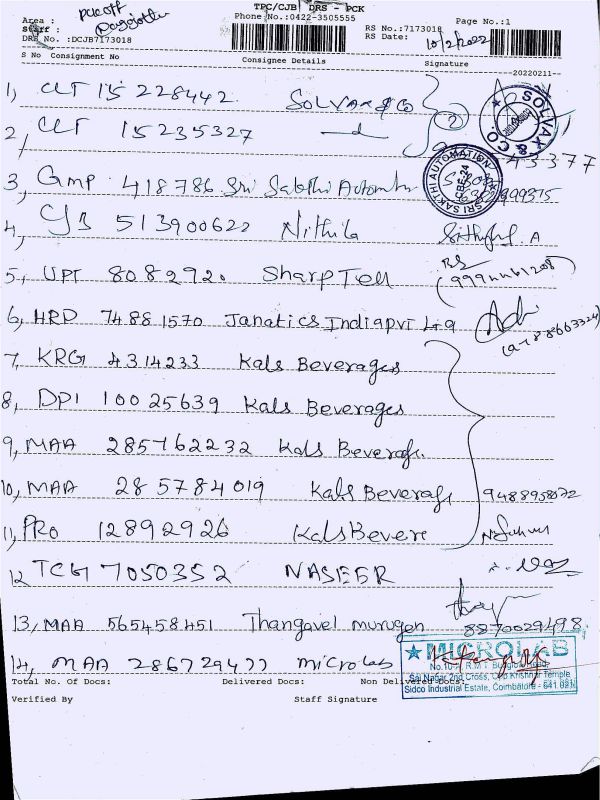 TPC/CJB DRS - PCK
Area :
Phone No.:0422-3505555
Page No.:1
Staff :
RS No.:7173018
DRS No. :DCJB7173018
RS Date: 10/2/2022
S No Consignment No Consignee Details Signature
--20220211--
1, CLT 15 228442 SOLVAX & Co
2, CLT 15235327
43377
3, GMP 418786 Sri Sakthi Automtn
4, CJB 513900622 Nithila A
5, UPT 8082920 Sharp Tell
6, HRD 74881570 Janatics India pvt Ltd
7, KRG 4314233 Kals Beverages
8, DPI 10025639 Kals Beverages
9, MAA 285762232 Kals Beverage
10, MAA 285784019 Kals Beverage 9488958072
11, PRO 12892926 Kals Bevere
12 TCH 7050352 NASEER
13, MAA 565458451 Thangavel murugan 8870029498.
14, MAA 286729477 microlab
SOLVAX & CO.
SRI SAKTHI AUTOMATION
MICROLAB
Sai Nagar 2nd Cross, Opp Krishnar Temple
Sidco Industrial Estate, Coimbatore - 641 021
Total No. Of Docs: Delivered Docs: Non Delivered Docs:
Verified By Staff Signature